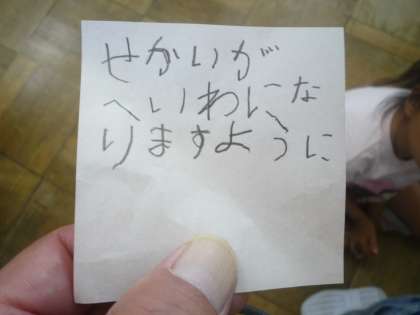 せかいが
へいわにな
りますように